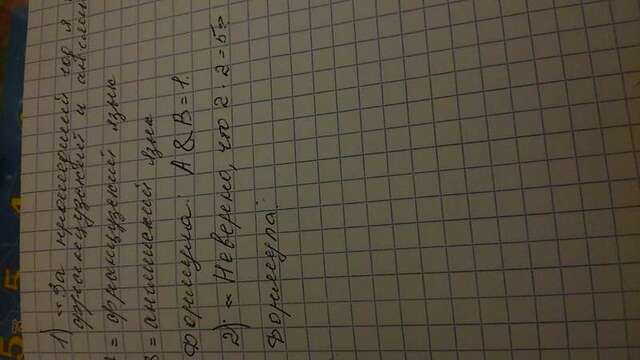 1) «За прошедший год я
французский и английс
= французский язык
= английский язык
Формула: A & B = 1.
2). «Неверно, что 2 · 2 = 5»
Формула: